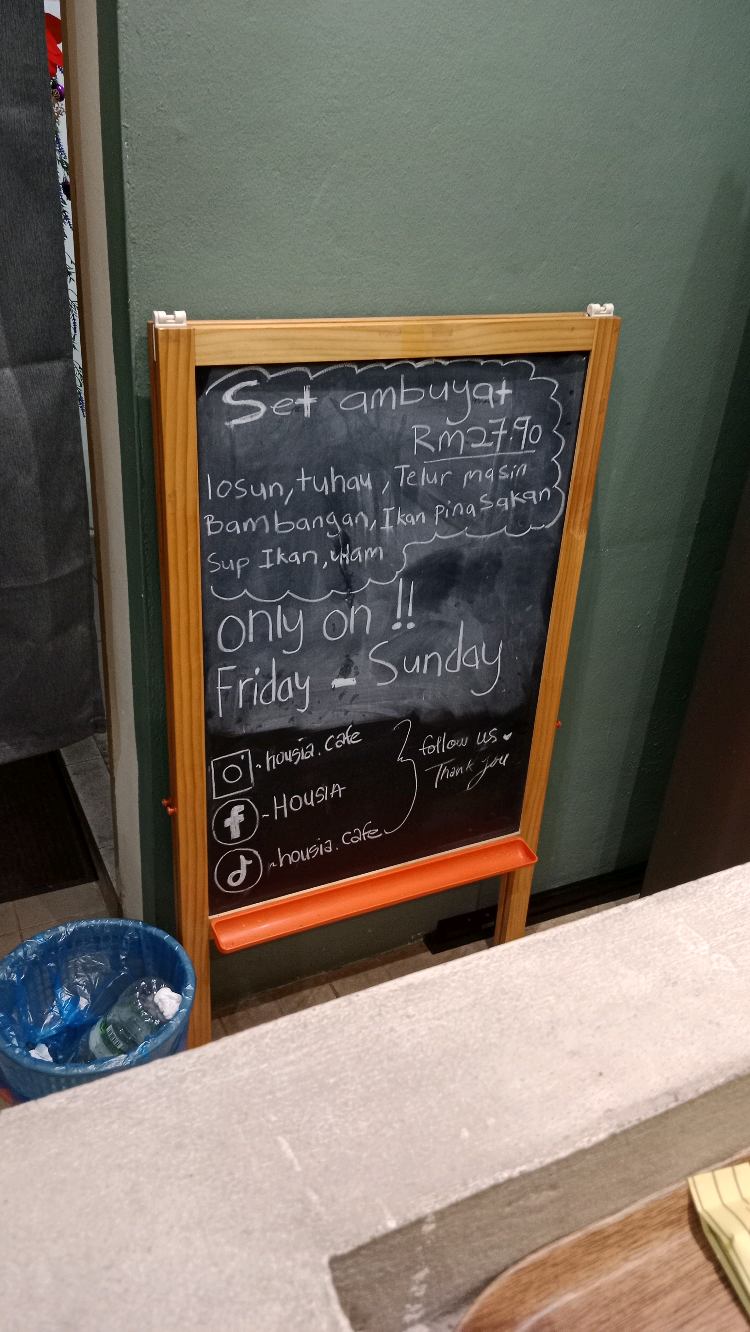 Set ambuyat
RM27.90
losun, tuhau, Telur masin
Bambangan, Ikan pinasakan
Sup Ikan, ulam
only on !!
Friday - Sunday
- housia.cafe
- HOUSIA
- housia.cafe
follow us
Thank you